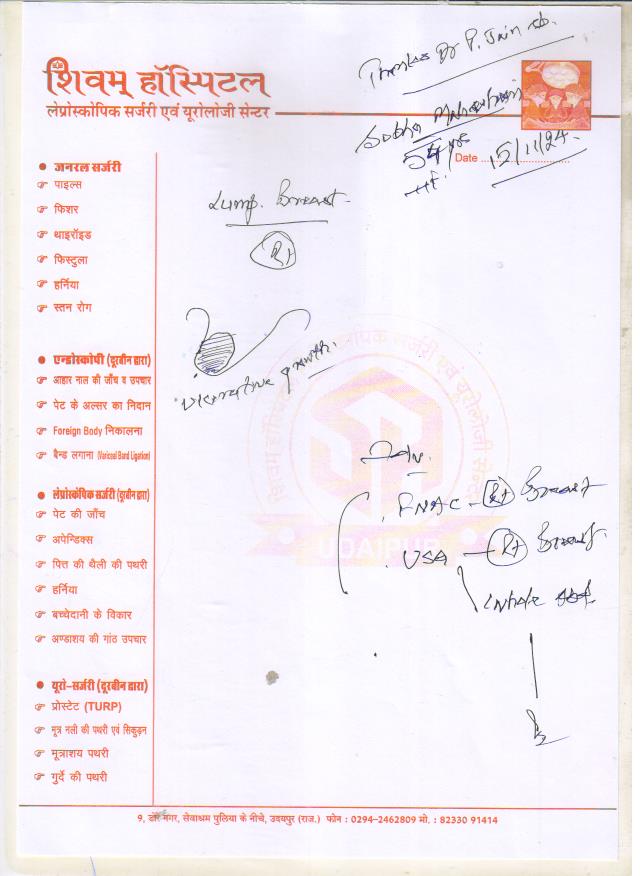 Thanks Dr P. Jain sb.
शिवम् हॉस्पिटल
लेप्रोस्कोपिक सर्जरी एवं यूरोलोजी सेन्टर
54 yrs
Date 15/11/24
Lump. Breast
Rt
Ulcerative growth.
● जनरल सर्जरी
पाइल्स
फिशर
थाइरॉइड
फिस्टुला
हर्निया
स्तन रोग
● एन्डोस्कोपी (दूरबीन द्वारा)
आहार नाल की जाँच व उपचार
पेट के अल्सर का निदान
Foreign Body निकालना
बैन्ड लगाना (Variceal Band Ligation)
● लेप्रोस्कोपिक सर्जरी (दूरबीन द्वारा)
पेट की जाँच
अपेन्डिक्स
पित्त की थैली की पथरी
हर्निया
बच्चेदानी के विकार
अण्डाशय की गांठ उपचार
● यूरो-सर्जरी (दूरबीन द्वारा)
प्रोस्टेट (TURP)
मूत्र नली की पथरी एवं सिकुड़न
मूत्राशय पथरी
गुर्दे की पथरी
Adv.
FNAC - Rt Breast
USA - Rt Breast.
whole abd
UDAIPUR
9, डोरे नगर, सेवाश्रम पुलिया के नीचे, उदयपुर (राज.) फोन : 0294-2462809 मो. : 82330 91414